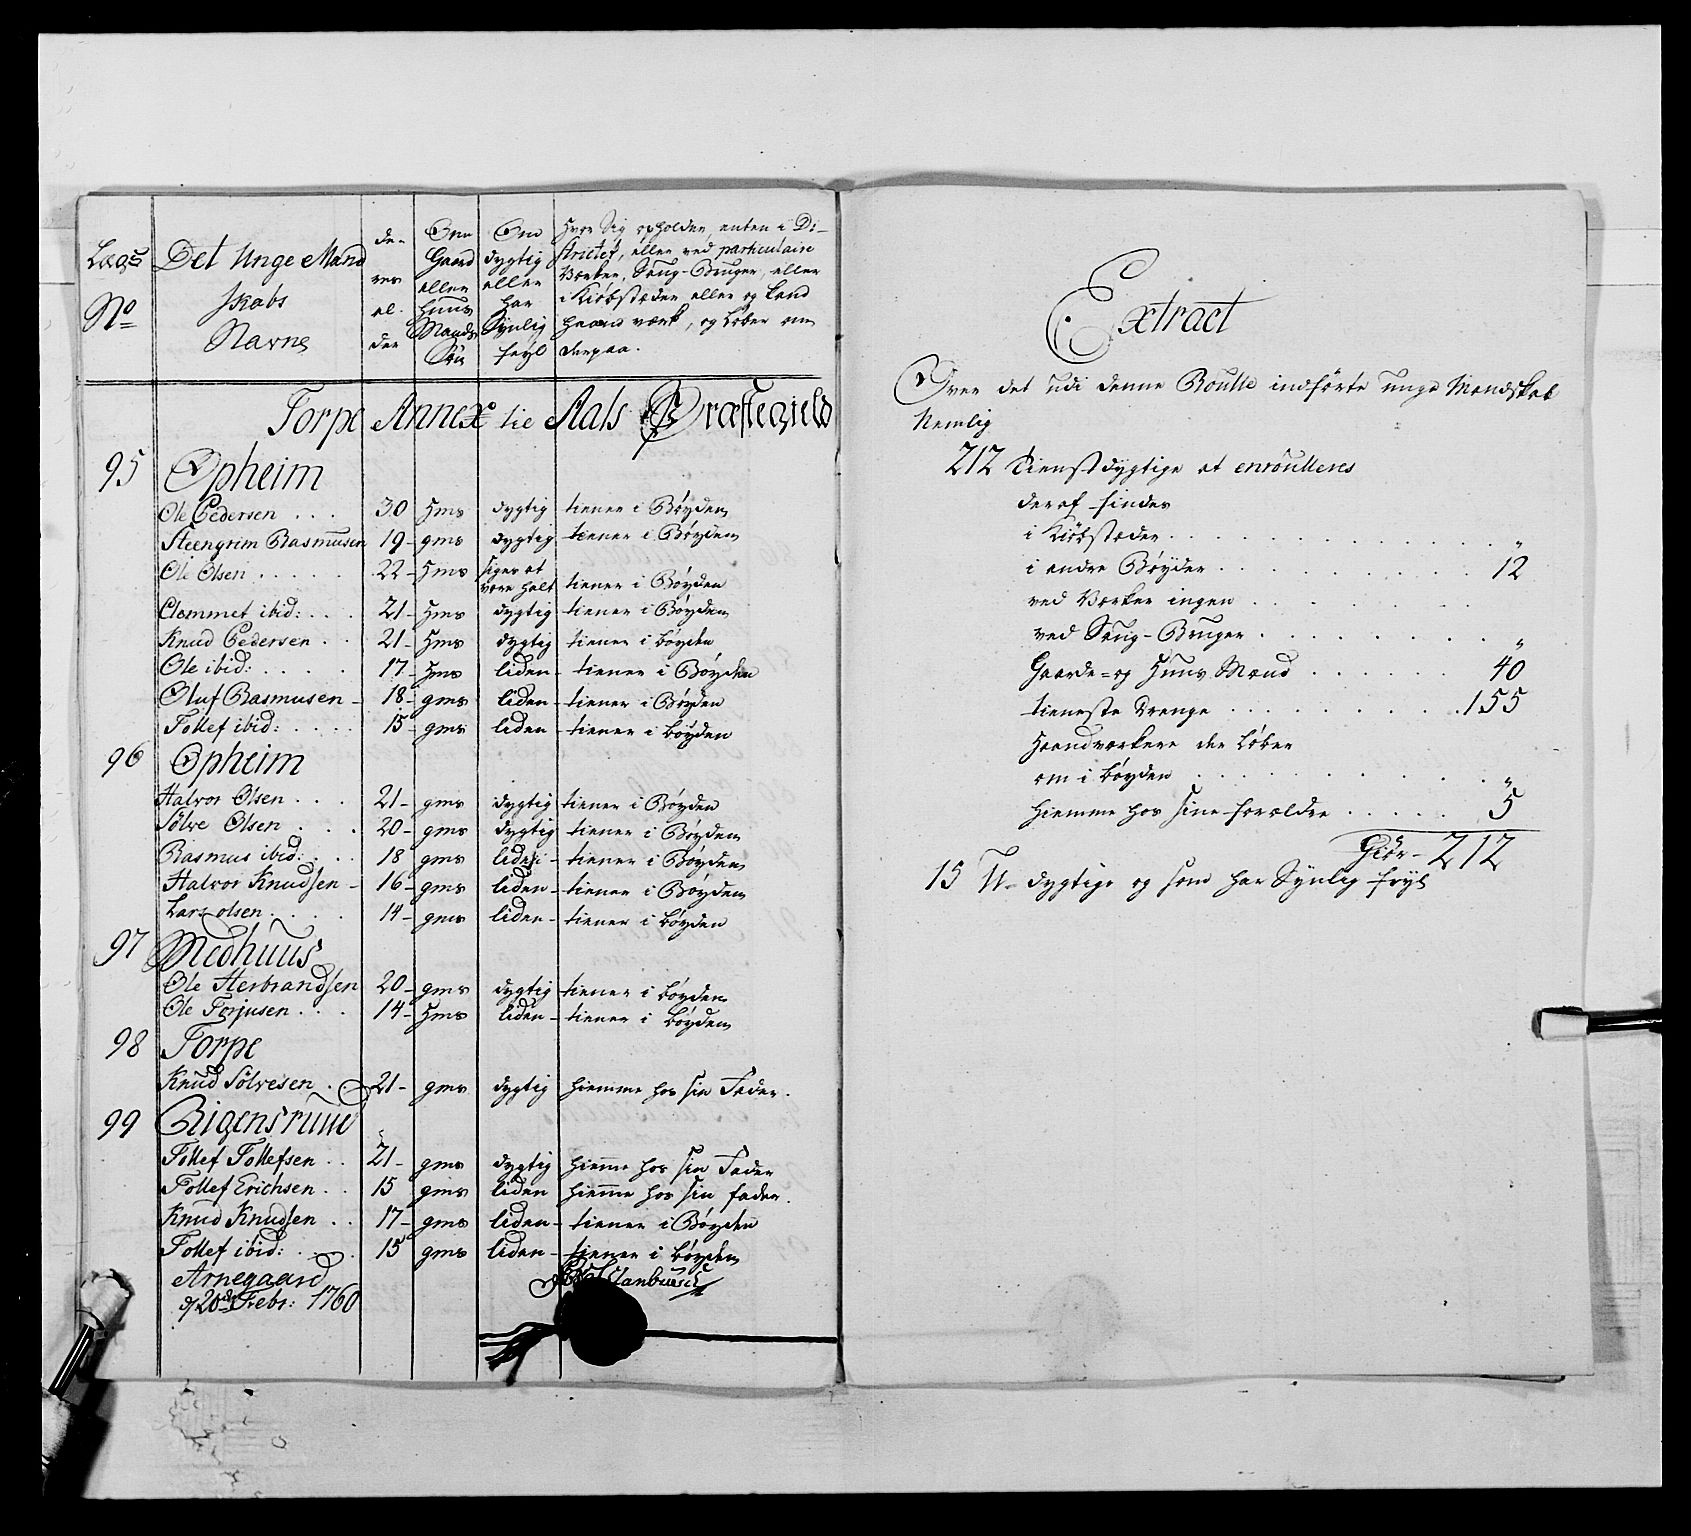 Lægs No
Det Unge Mand skabs Navne
de- res al- der
Om Gaard eller Huus Mands Søn
Om dygtig eller har Synlig feyl
Hvor Sig opholder, enten i Di- strictet, eller ved particulaire Værker, Saug-Bruger, eller i Kiøbstæder eller og kand haand værk, og løber om derpaa.
Torpe Annex til Aals Præstegield
95 Opheim
Ole Pedersen . . . 30 Hms dygtig tiener i Bøyden
Steengrim Rasmusen 19- gms dygtig tiener i Bøyden
Ole Olsen . . . . . 22- Hms siges at være halt tiener i Bøyden
Clemmet ibid: . . . 21- Hms dygtig tiener i Bøyden
Knud Pedersen . . 21- Hms dygtig tiener i bøyden
Ole ibid: . . . . . 17- Hms liden- tiener i Bøyden
Oluf Rasmusen - 18- gms liden- tiener i Bøyden
Tollef ibid: . . . . 15- gms liden- tiener i bøyden
96 Opheim
Halvor Olsen . . . 21- gms dygtig tiener i Bøyden
Sølve Olsen . . . 20- gms dygtig tiener i Bøyden
Rasmus ibid: . . . 18 gms liden- tiener i Bøyden
Halvor Knudsen - 16- gms liden- tiener i Bøyden
Lars olsen . . . . 14- gms liden- tiener i bøyden
97 Medhuus
Ole Herbrandsen 20- gms dygtig tiener i bøyden
Ole Torjusen . . . 14- Hms liden- tiener i bøyden
98 Torpe
Knud Sølvesen . 21- gms dygtig hiemme hos sin Fader.
99 Rigensruud
Tollef Tollefsen . . 21- gms dygtig hieme hos sin Fader
Tollef Erichsen . . 15 gms liden hieme hos sin fader.
Knud Knudsen . . 17- gms liden- tiener i Bøyden
Tollef ibid: . . . . 15 gms liden- tiener i bøyden
Arnegaard
d/20de Febr: 1760
Extract
Over det udi denne Roulle indførte unge Mandskab
Nemlig
212 tienstdygtige at enroulleres
deraf findes
i Kiøbstæder . . . . . . . . . "
i andre Bøyder . . . . . . . . 12
ved Værker ingen . . . . . . .
ved Saug-Bruger . . . . . . . "
Gaarde- og Huus Mænd . . . . . 40
tieneste Drenge . . . . . . . . 155
Haandværkere der løber
om i bøyden . . . . . . . . . "
hiemme hos sine forældre . . . . . 5
Giør- 212
15 U- dygtige og som har Synlig feyl